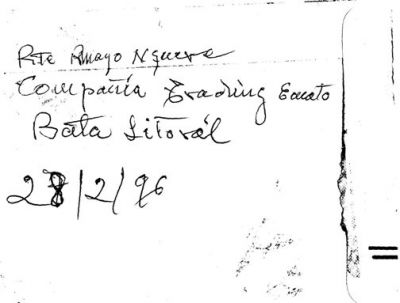 Rte Amayo Nguere
Compañia Trading Ecuato
Bata Litoral
28/2/96